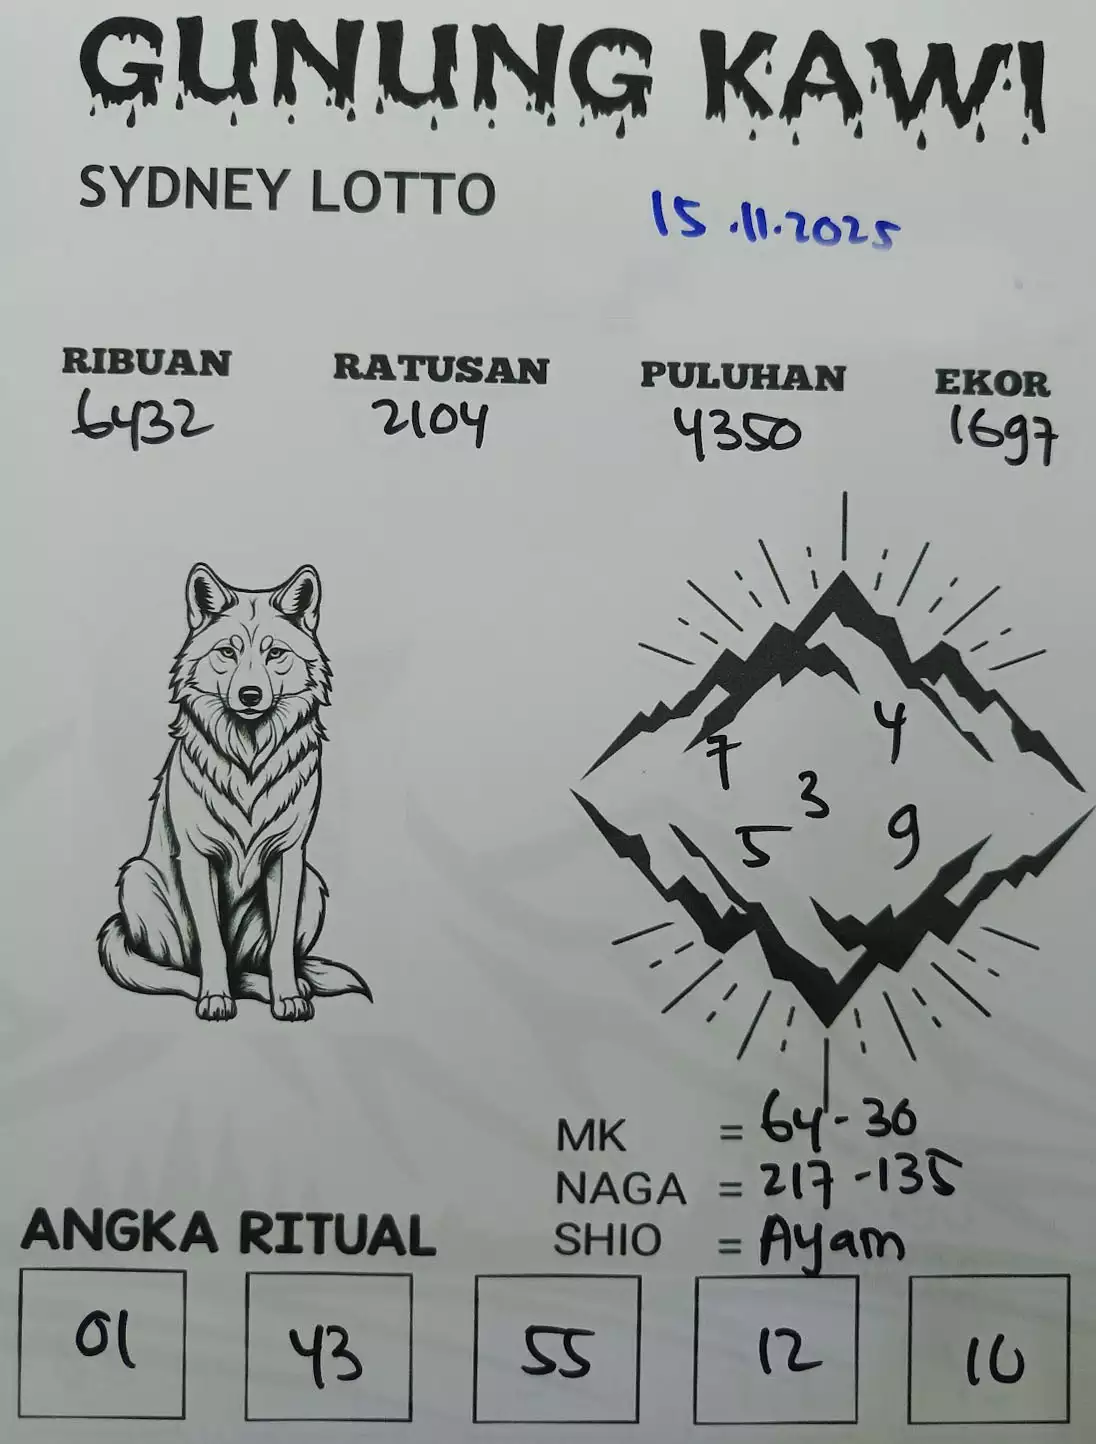 GUNUNG KAWI
SYDNEY LOTTO
15.11.2025
RIBUAN RATUSAN PULUHAN EKOR
6432 2104 4350 1697
7 4
3
5 9
MK = 64-30
NAGA = 217-135
SHIO = Ayam
ANGKA RITUAL
01 43 55 12 10